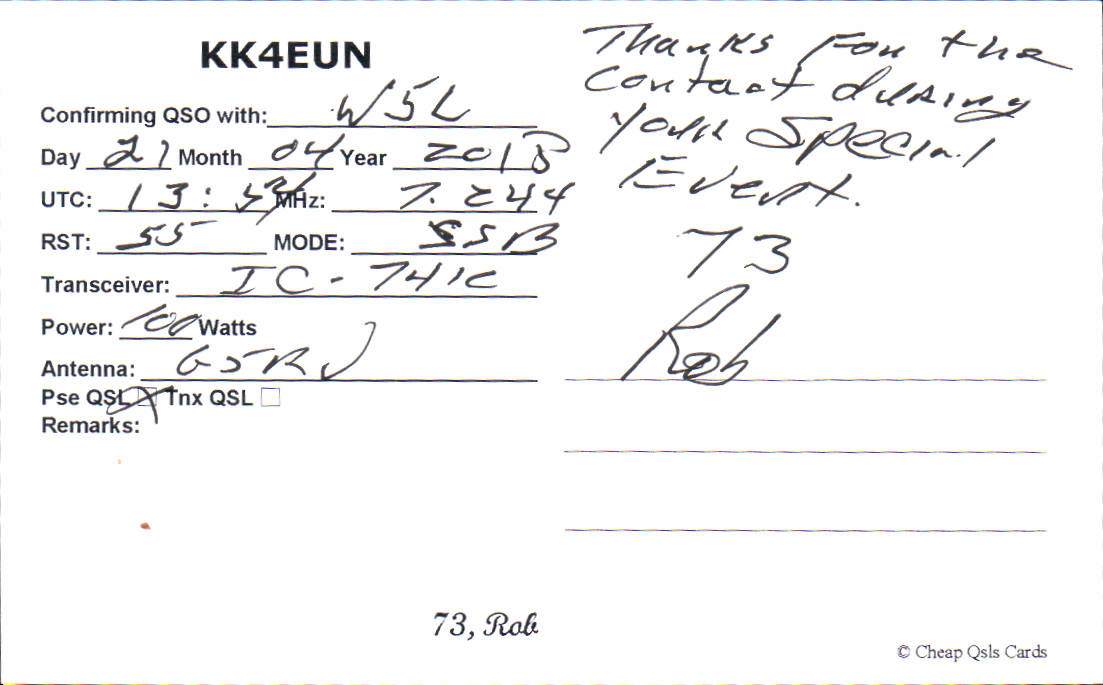 KK4EUN
Confirming QSO with: W5L
Day 21 Month 04 Year 2018
UTC: 13: MHz: 7.244
RST: 55 MODE: SSB
Transceiver: IC-7410
Power: 100 Watts
Antenna: G5RV
Pse QSL Tnx QSL
Remarks:
73, Rob
Thanks For the
Contact during
your Special
Event.
73
Rob
© Cheap Qsls Cards